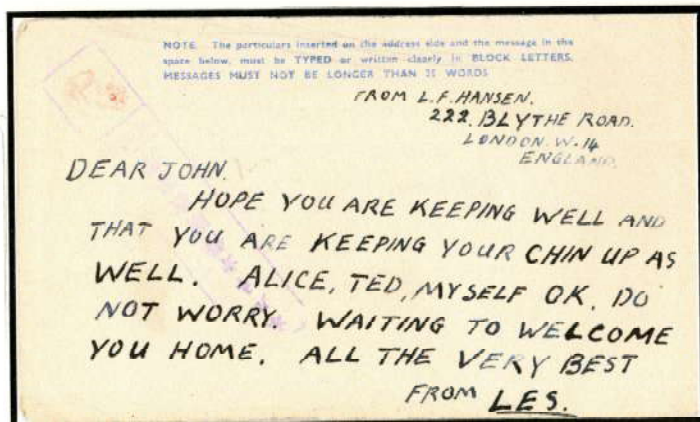 NOTE. The particulars inserted on the address side and the message in the
space below, must be TYPED or written clearly in BLOCK LETTERS.
MESSAGES MUST NOT BE LONGER THAN 25 WORDS
FROM L.F. HANSEN.
222. BLYTHE ROAD.
LONDON. W.14
ENGLAND.
DEAR JOHN.
HOPE YOU ARE KEEPING WELL AND
THAT YOU ARE KEEPING YOUR CHIN UP AS
WELL. ALICE, TED, MYSELF OK. DO
NOT WORRY. WAITING TO WELCOME
YOU HOME. ALL THE VERY BEST
FROM LES.